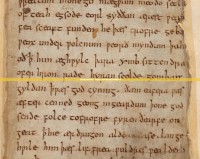 þreatum monegum mægþum meodo setla
of teah egsode eorl syððan ærest ƿear
fea sceaft funden he þæs frofre geba
ƿeox under ƿolcnum ƿeorð myndum þah
oð þ him æghƿylc þara ymb sittendra
ofer hron rade hyran scolde gomban
gyldan þ ƿæs god cyning. ðæm eafera ƿæs
æfter cenned geong in geardum þone god
sende folce to frofre fyren ðearfe on
geat þ hie ær drugon aldor ase. lange
hƿile him þæs lif frea ƿuldres